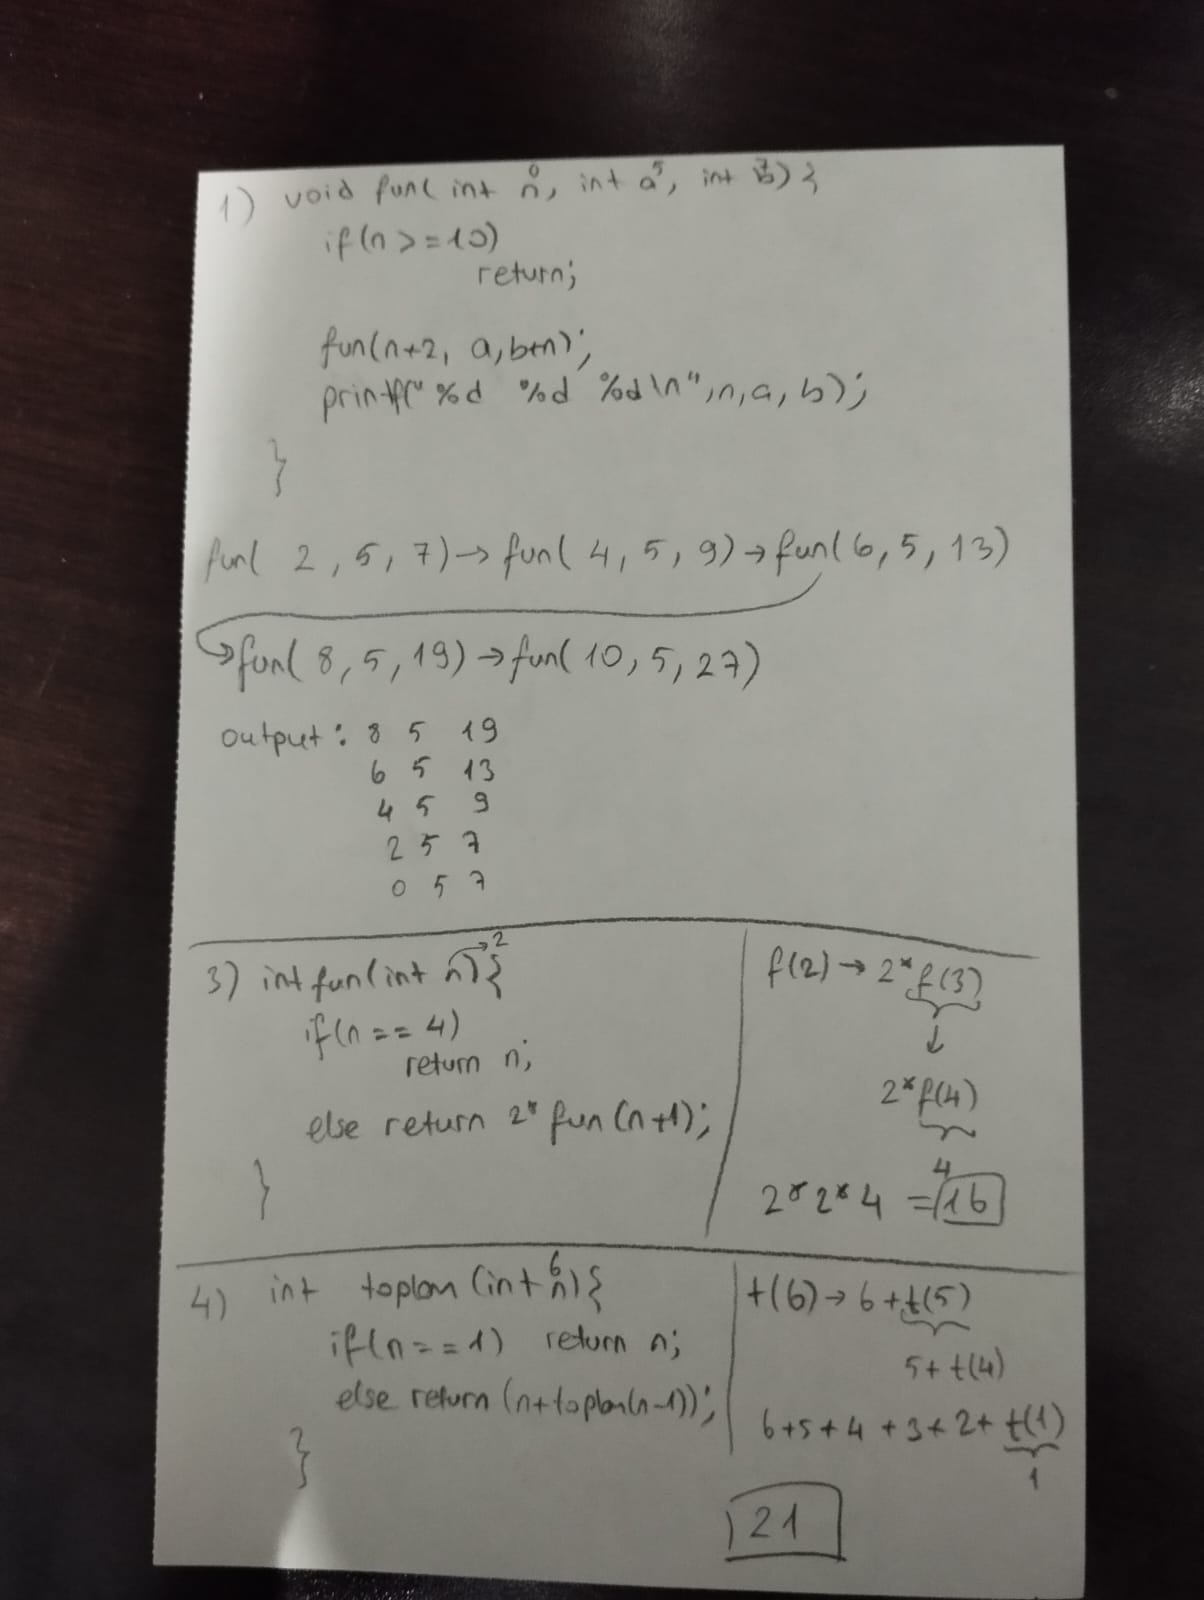 1) void fun( int n, int a, int b) {
0 5 7
if(n >= 10)
return;
fun(n+2, a, b+n);
printf(" %d %d %d\n", n, a, b);
}
fun( 2, 5, 7) → fun( 4, 5, 9) → fun( 6, 5, 13)
→ fun( 8, 5, 19) → fun( 10, 5, 27)
output: 8 5 19
6 5 13
4 5 9
2 5 7
0 5 7
3) int fun(int n) {
→ 2
if(n == 4)
return n;
else return 2* fun (n+1);
}
f(2) → 2* f(3)
↓
2* f(4)
4
2* 2* 4 = 16
4) int toplam (int n) {
6
if(n == 1) return n;
else return (n+toplam(n-1));
}
t(6) → 6 + t(5)
5+ t(4)
6+5+4 +3+2+ t(1)
1
21